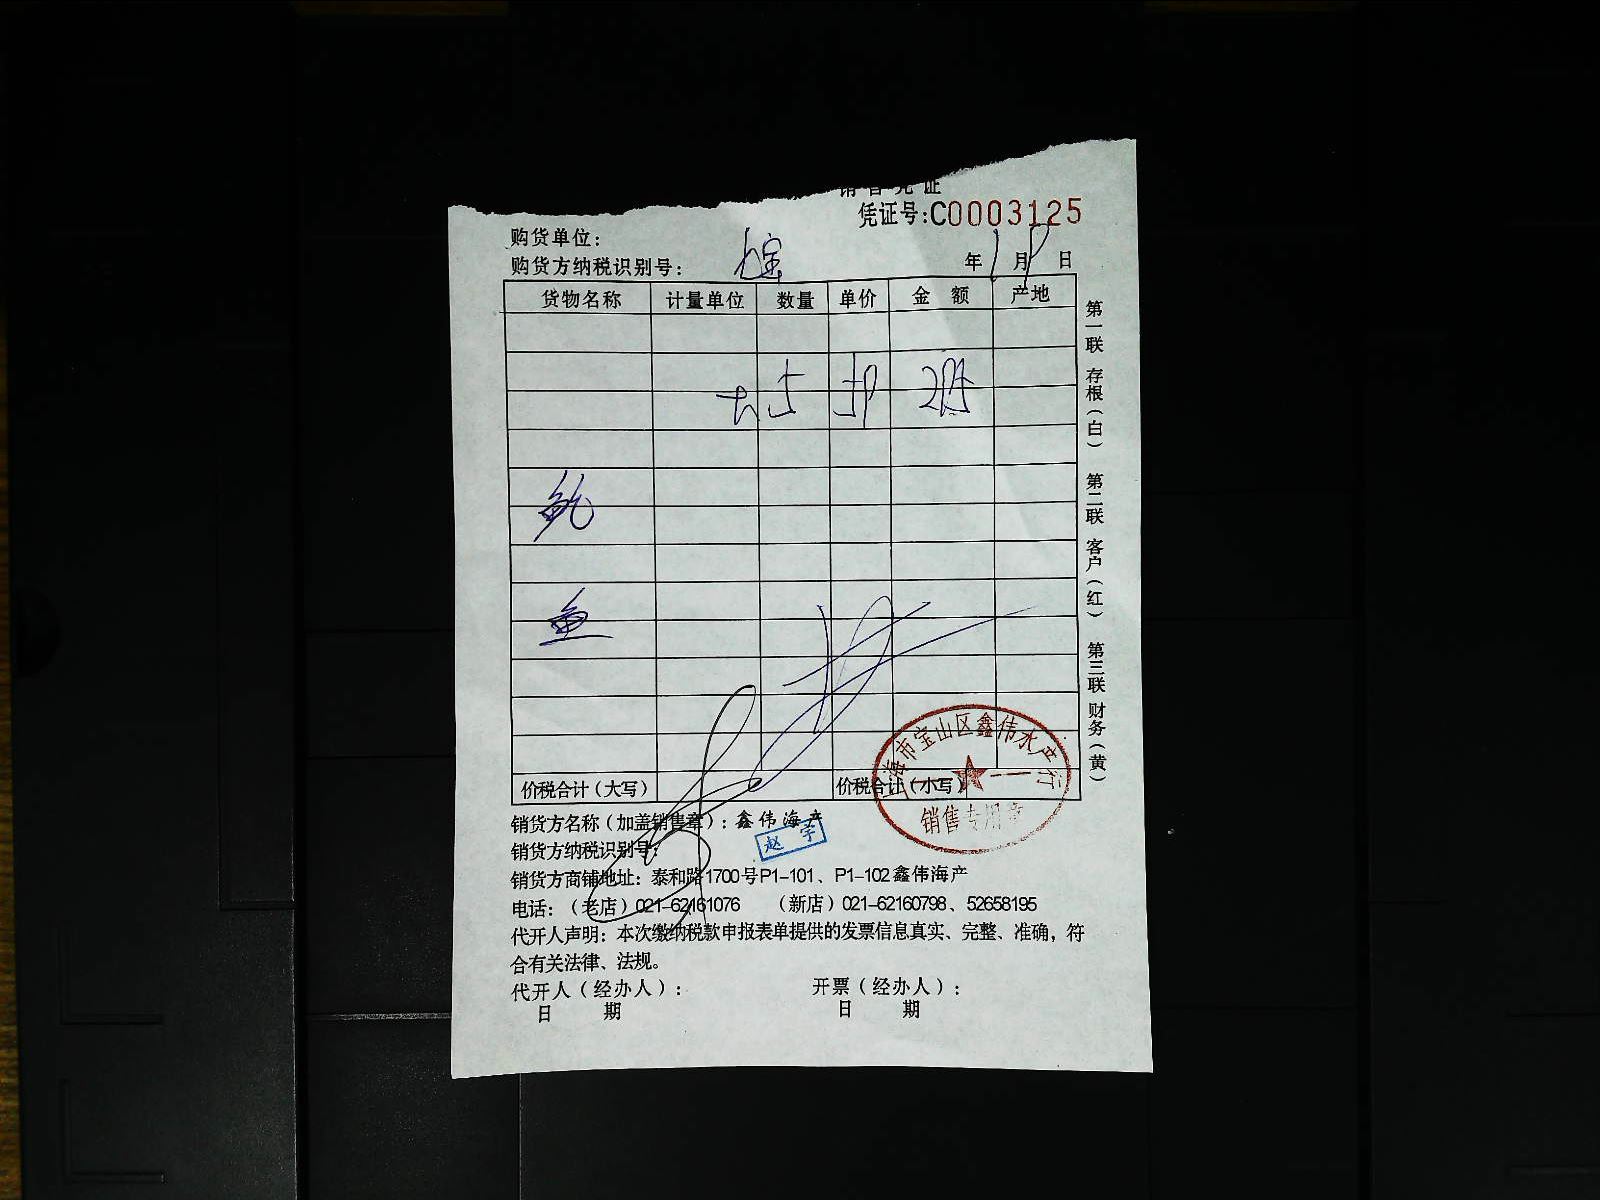 销售凭证
凭证号:C0003125
购货单位:
购货方纳税识别号: 年 1 月 9 日
货物名称 计量单位 数量 单价 金额 产地
鲍
鱼
价税合计(大写) 价税合计(小写)
销货方名称(加盖销售章):鑫伟海产
赵宇
销货方纳税识别号:
销货方商铺地址:泰和路1700号P1-101、P1-102鑫伟海产
电话:(老店)021-62161076 (新店)021-62160798、52658195
代开人声明:本次缴纳税款申报表单提供的发票信息真实、完整、准确,符
合有关法律、法规。
代开人(经办人): 开票(经办人):
日 期 日 期
第一联 存根(白) 第二联 客户(红) 第三联 财务(黄)
上海市宝山区鑫伟水产行
销售专用章